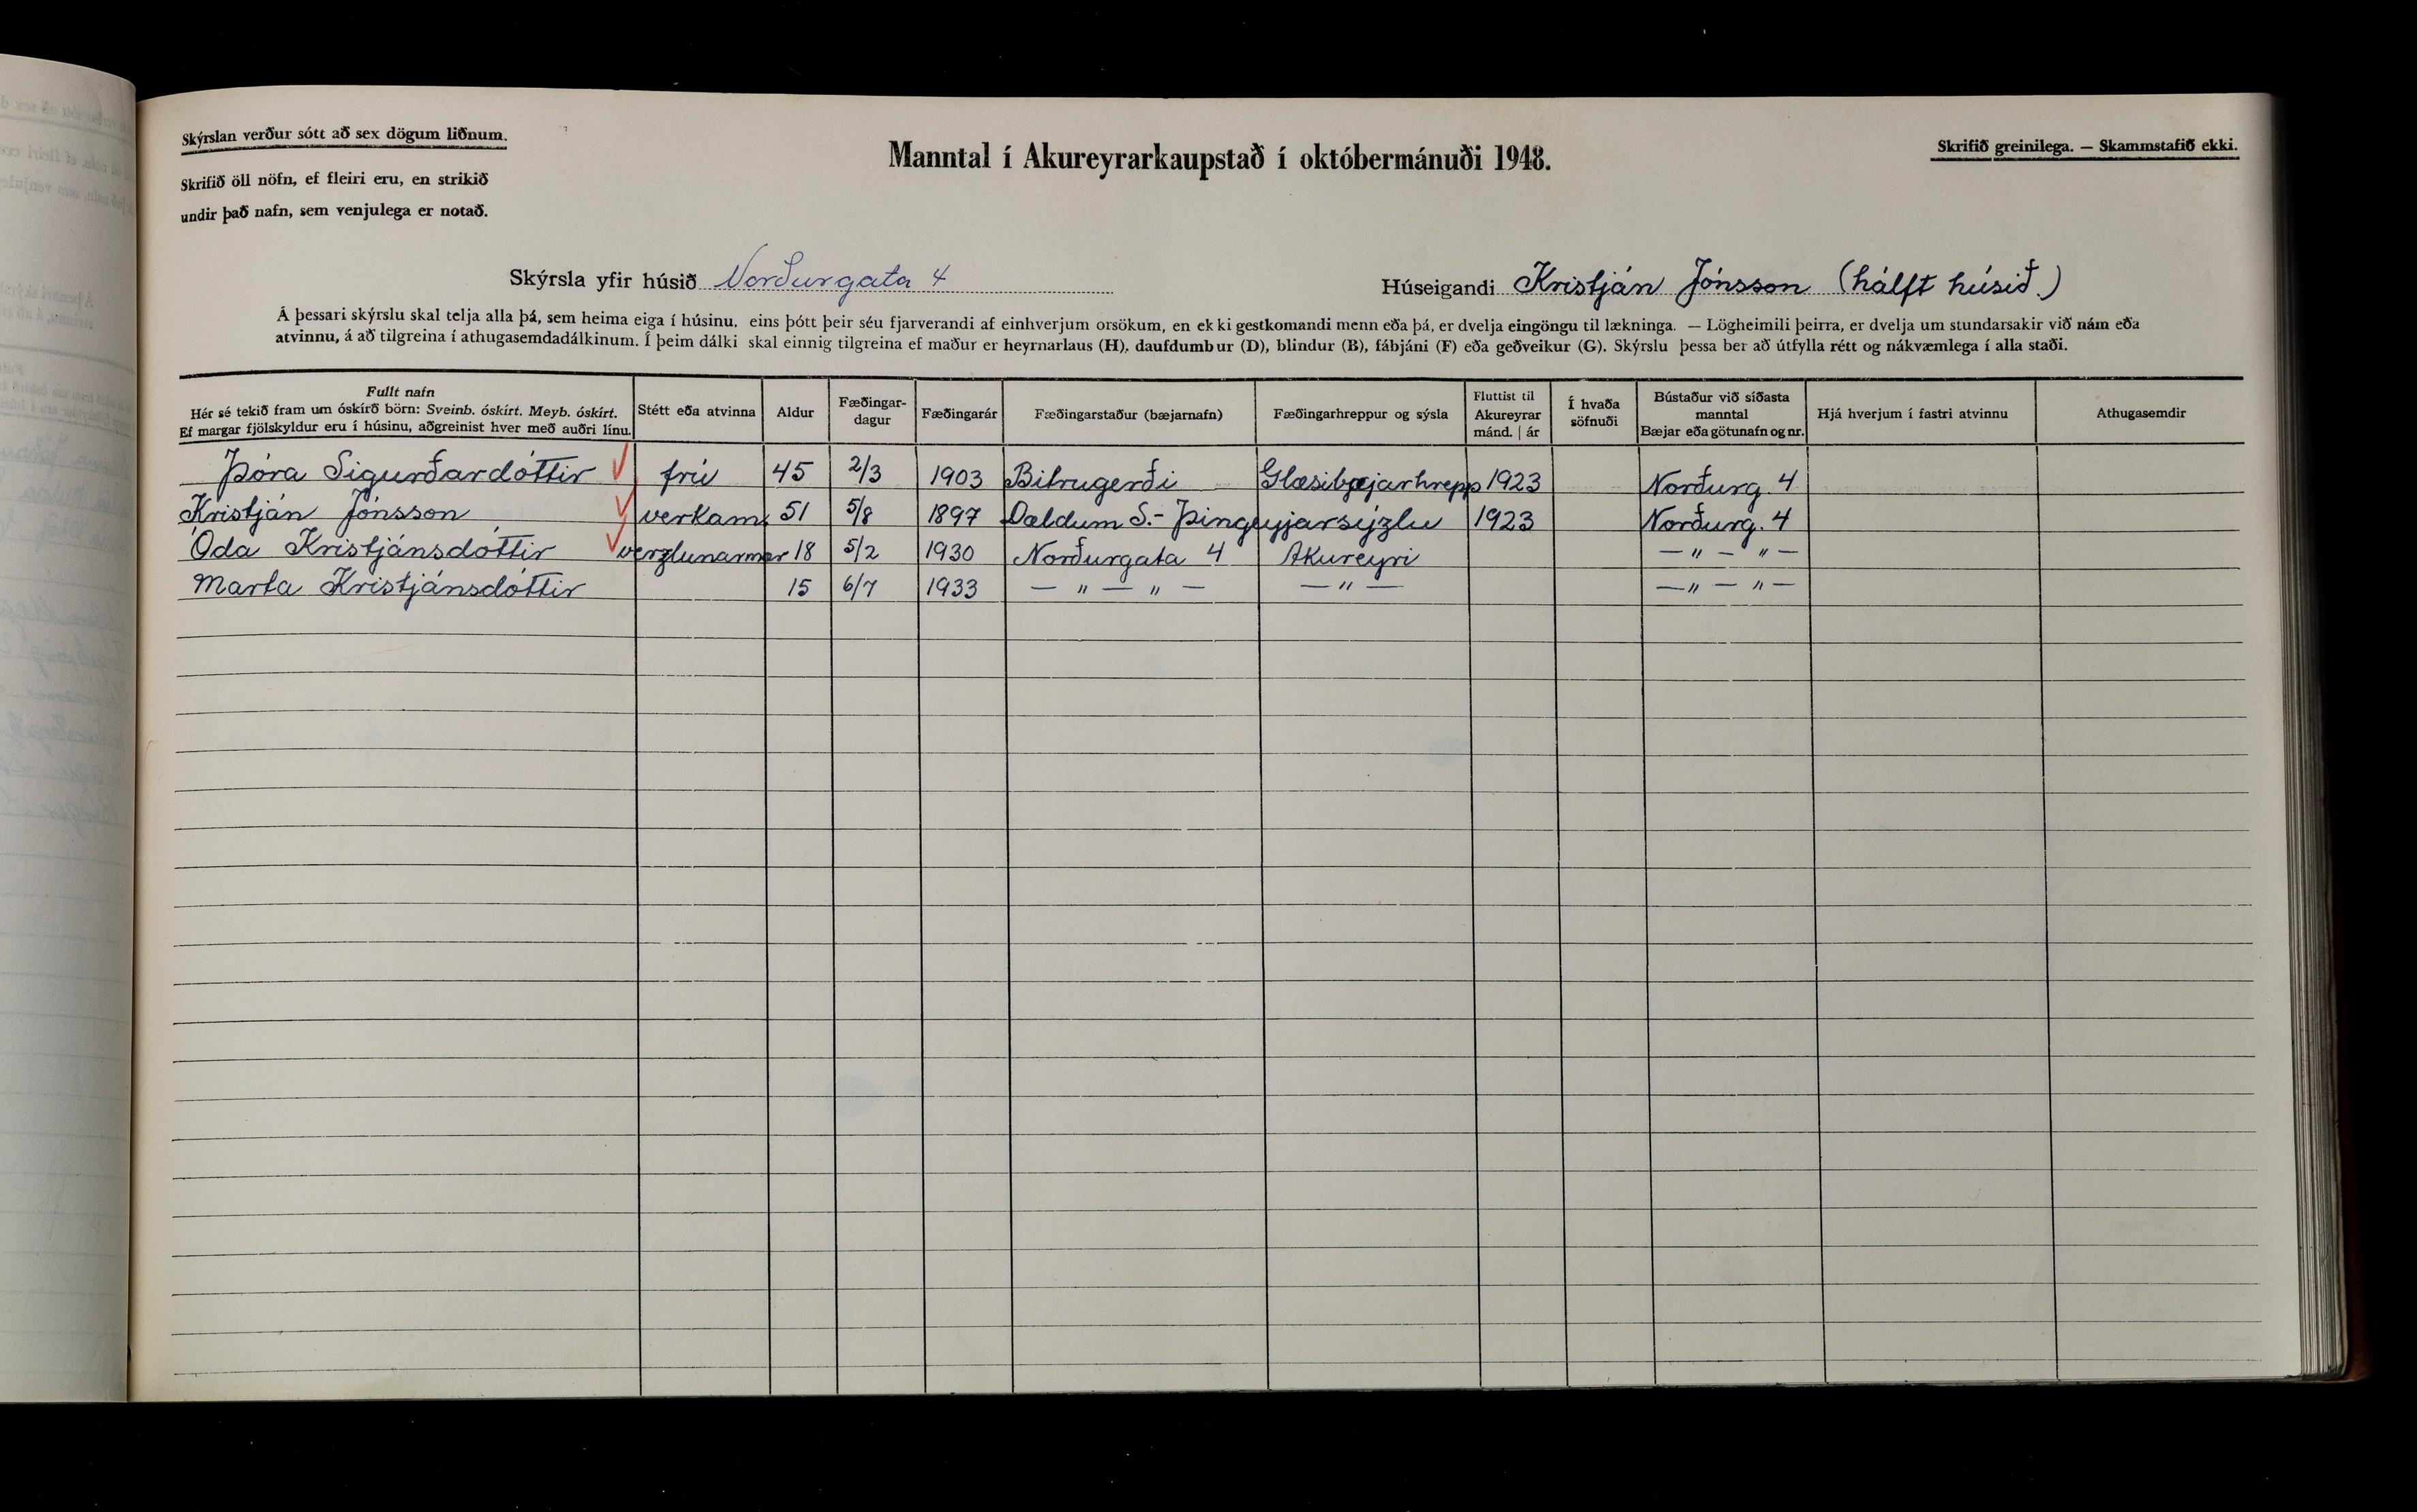 Skýrslan verður sótt að sex dögum liðnum.
Skrifið öll nöfn, ef fleiri eru, en strikið
undir það nafn, sem venjulega er notað.
Manntal í Akureyrarkaupstað í októbermánuði 1948.
Skrifið greinilega. — Skammstafið ekki.
Skýrsla yfir húsið Norðurgata 4
Húseigandi Kristján Jónsson (hálft húsið.)
Á þessari skýrslu skal telja alla þá, sem heima eiga í húsinu, eins þótt þeir séu fjarverandi af einhverjum orsökum, en ekki gestkomandi menn eða þá, er dvelja eingöngu til lækninga. — Lögheimili þeirra, er dvelja um stundarsakir við nám eða
atvinnu, á að tilgreina í athugasemdadálkinum. Í þeim dálki skal einnig tilgreina ef maður er heyrnarlaus (H), daufdumbur (D), blindur (B), fábjáni (F) eða geðveikur (G). Skýrslu þessa ber að útfylla rétt og nákvæmlega í alla staði.
Fullt nafn
Hér sé tekið fram um óskírð börn: Sveinb. óskírt. Meyb. óskírt.
Ef margar fjölskyldur eru í húsinu, aðgreinist hver með auðri línu.
Stétt eða atvinna
Aldur
Fæðingar-
dagur
Fæðingarár
Fæðingarstaður (bæjarnafn)
Fæðingarhreppur og sýsla
Fluttist til
Akureyrar
mánd. | ár
Í hvaða
söfnuði
Bústaður við síðasta
manntal
Bæjar eða götunafn og nr.
Hjá hverjum í fastri atvinnu
Athugasemdir
Þóra Sigurðardóttir frú 45 2/3 1903 Bitrugerði Glæsibæjarhrepp 1923 Norðurg. 4
Kristján Jónsson verkam. 51 5/8 1897 Dældum S.-Þingeyjarsýzlu 1923 Norðurg. 4
Óda Kristjánsdóttir verzlunarmær 18 5/2 1930 Norðurgata 4 Akureyri — " — " —
Marta Kristjánsdóttir 15 6/7 1933 — " — " — — " — — " — " —